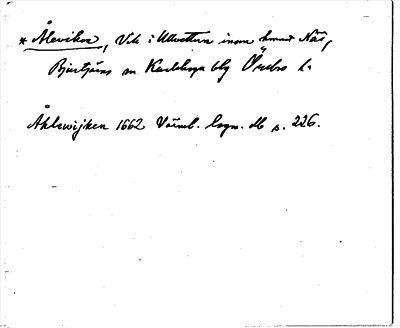 * Åleviken, Vik i Ullvettern inom hemmet Näs,
Bjurtjärns sn Karlskoga bg Örebro l.
Åhlewijken 1662 Värml. lagm. db s. 226.